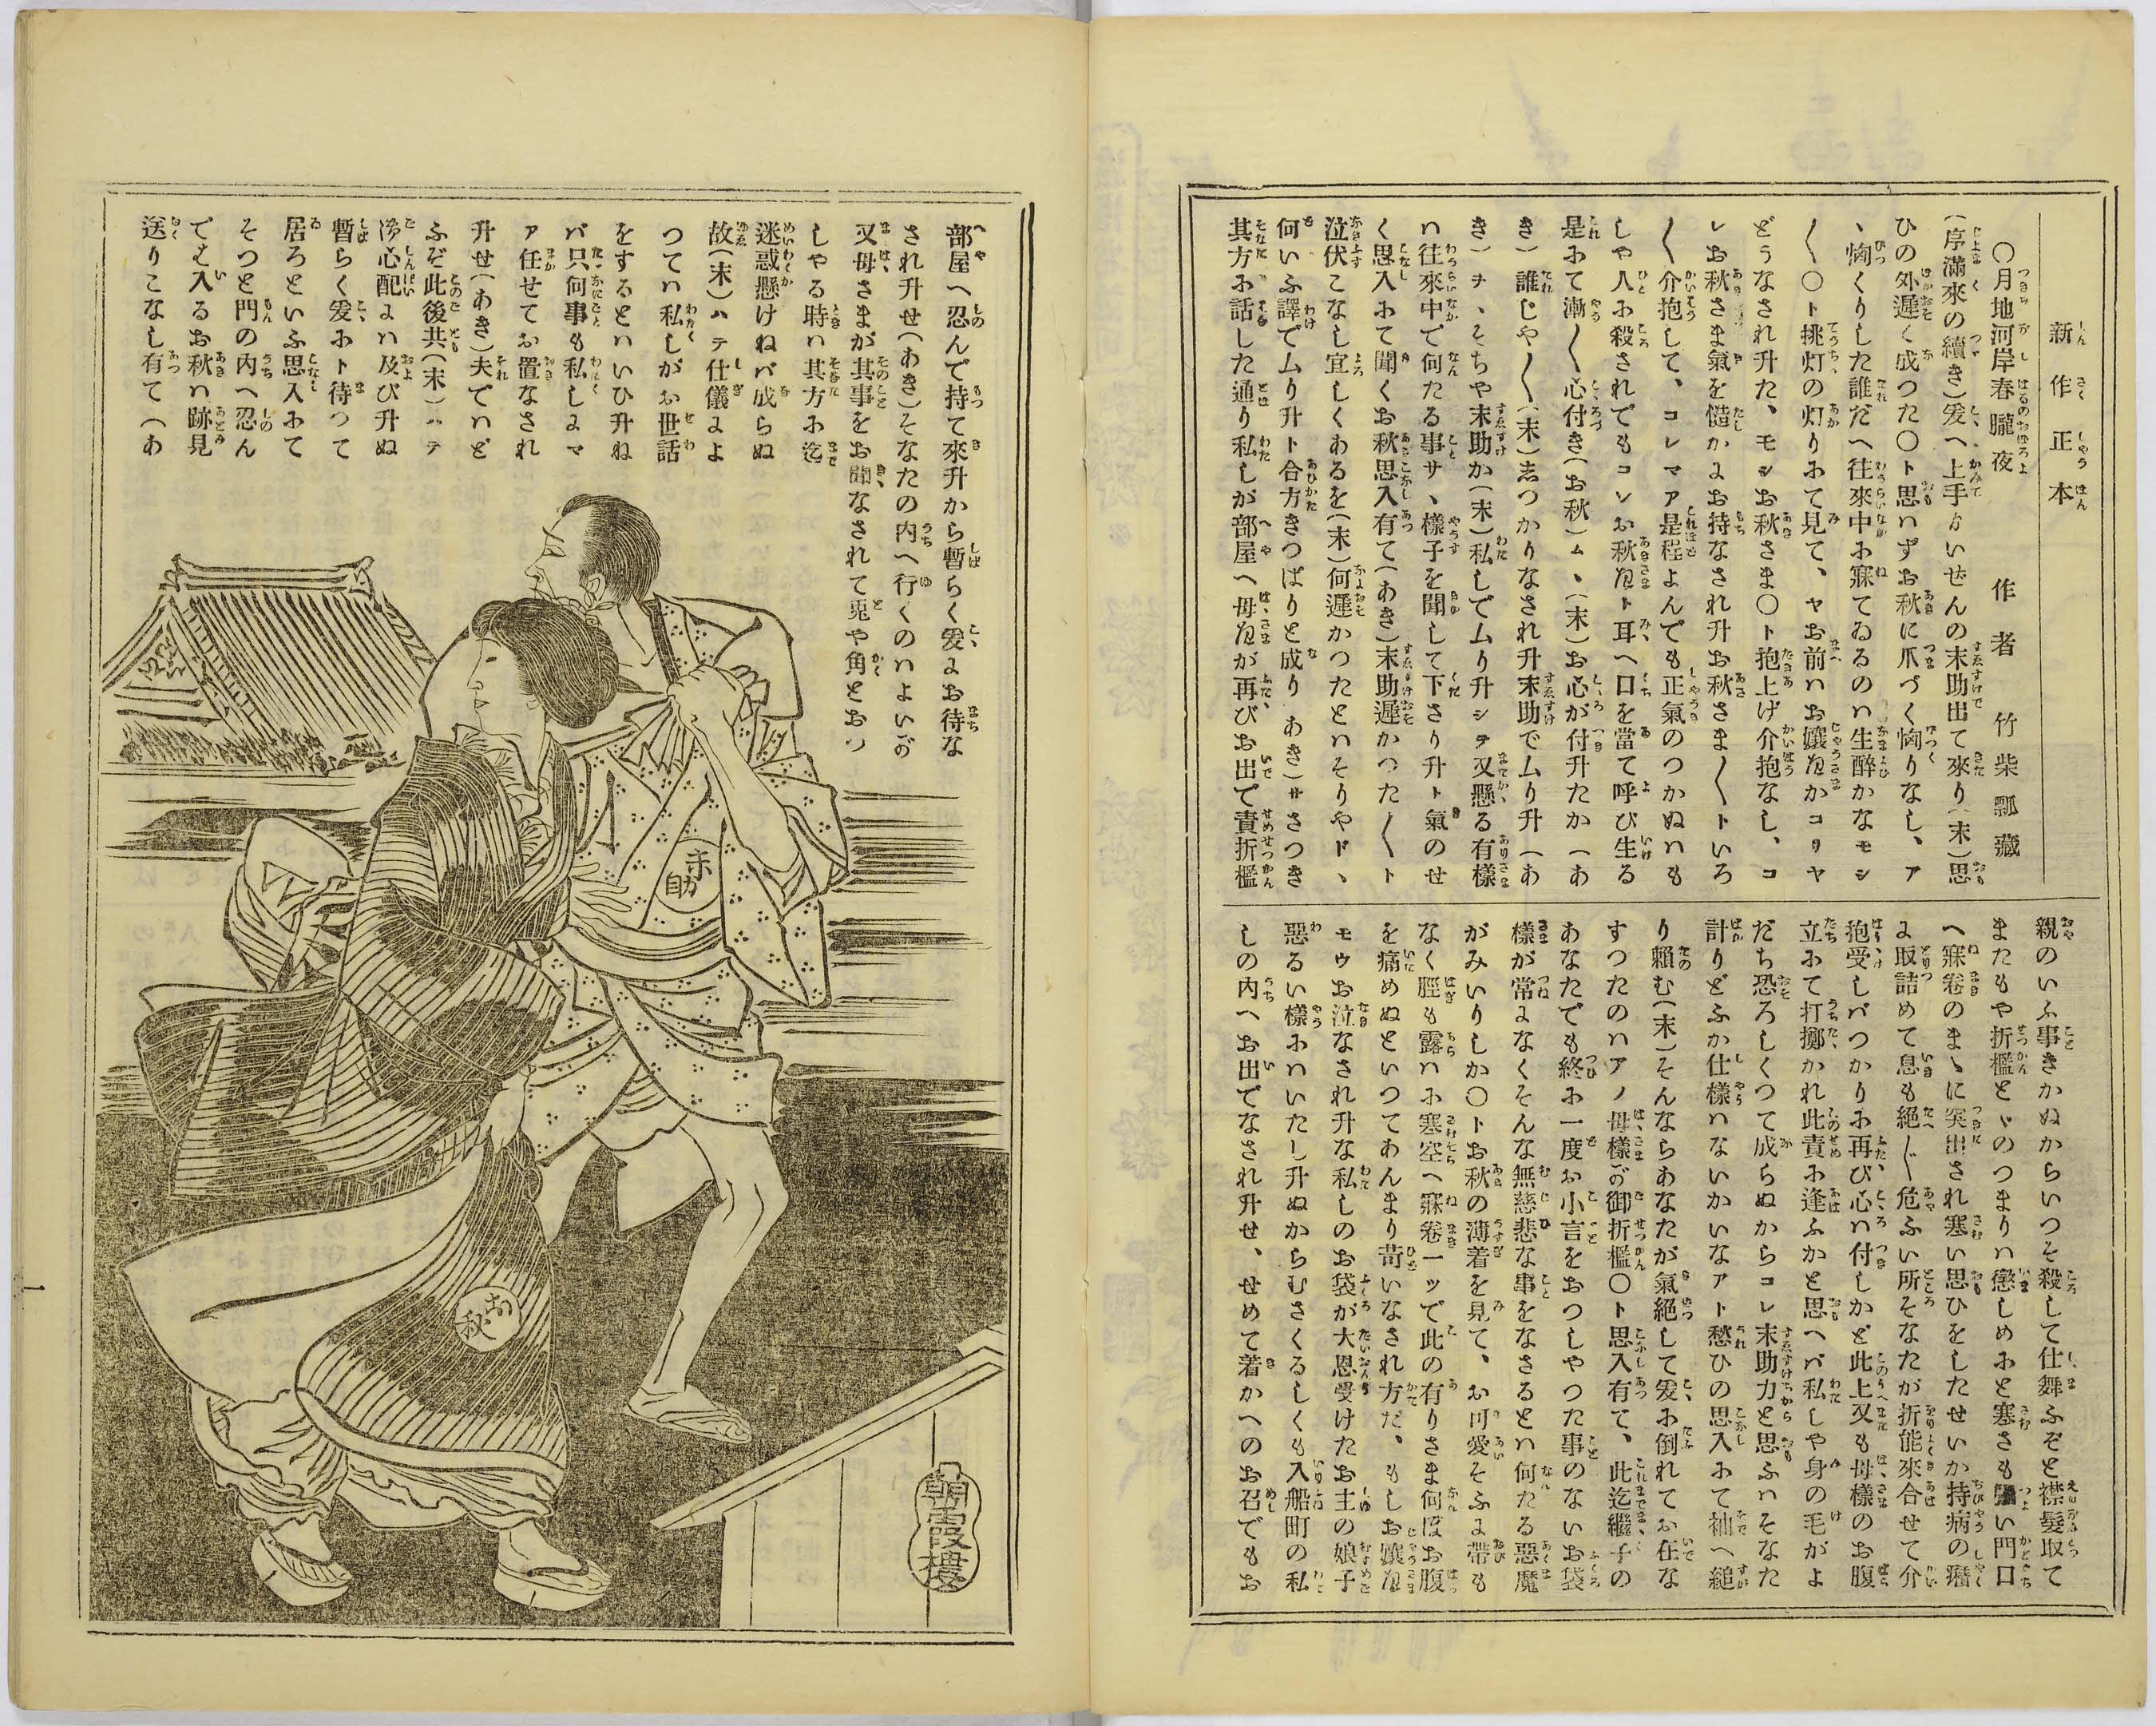 新作正本
作者 竹柴瓢藏
〇月地河岸春朧夜
(序滿來の續き)爰へ上手ゟいぜんの末助出て來り(末)思
ひの外遲く成つた〇ト思ハずお秋に爪づく恟りなし、ア
ヽ恟くりした誰だへ往來中ホ寐てゐるのハ生醉かなモシ
〱〇ト挑灯の灯りホて見て、ヤお前ハお孃さまかコリヤ
どうなされ升た、モシお秋さま〇ト抱上げ介抱なし、コ
レお秋さま氣を慥かにお持なされ升お秋さま〱トいろ
〱介抱して、コレマア是程よんでも正氣のつかぬハも
しや人ホ殺されでもコレお秋さまト耳へ口を當て呼び生る
是ホて漸〱心付き(お秋)ム、(末)お心が付升たか(あ
き)誰じや〱(末)志つかりなされ升末助でムり升(あ
き)ヲヽそちや末助か(末)私しでムり升シテ又懸る有樣
ハ往來中で何たる事サ、樣子を聞して下さり升ト氣のせ
く思入ホて聞くお秋思入有て(あき)末助遲かつた〱ト
泣伏こなし宜しくあるを(末)何遲かつたとハそりやドヽ
何いふ譯でムり升ト合方きつぱりと成り(あき)サさつき
其方ホ話した通り私しが部屋へ母さまが再びお出で責折檻
親のいふ事きかぬからいつそ殺して仕舞ふぞと襟髮取て
またもや折檻とゞのつまりハ懲しめホと寒さも い門口
へ寐卷のまゝに突出され寒い思ひをしたせいか持病の癪
に取詰めて息も絶〲危ふい所そなたが折能來合せて介
抱受しバつかりホ再び心ハ付しかど此上又も母樣のお腹
立ホて打擲かれ此責ホ逢ふかと思へバ私しや身の毛がよ
だち恐ろしくつて成らぬからコレ末助力と思ふハそなた
計りどふか仕樣ハないかいなアト愁ひの思入ホて袖へ縋
り賴む(末)そんならあなたが氣絶して爰ホ倒れてお在な
すつたのハアノ母樣が御折檻〇ト思入有て、此迄繼子の
あなたでも終ホ一度お小言をおつしやつた事のないお袋
樣が常になくそんな無慈悲な事をなさるとハ何たる惡魔
がみいりしか〇トお秋の薄着を見て、お可愛そふに帶も
なく脛も露ハホ寒空へ寐卷一ッで此の有りさま何ぼお腹
を痛めぬといつてあんまり苛いなされ方だ、もしお孃さま
モウお泣なされ升な私しのお袋が大恩受けたお主の娘子
惡るい樣ホハいたし升ぬからむさくるしくも入船町の私
しの内へお出でなされ升せ、せめて着かへのお召でもお
部屋へ忍んで持て來升から暫らく爰にお待な
され升せ(あき)そなたの内へ行くのハよいが
又母さまが其事をお聞なされて兎や角とおつ
しやる時ハ其方ホ迄
迷惑懸けねバ成らぬ
故(末)ハテ仕儀によ
つてハ私しがお世話
をするといひ升ね
バ只何事も私しにマ
ア任せてお置なされ
升せ(あき)夫でハど
ふぞ此後共(末)ハテ
心配にハ及び升ぬ
暫らく爰ホト待つて
居ろといふ思入ホて
そつと門の内へ忍ん
では入るお秋ハ跡見
送りこなし有て(あ
末助
お秋
朝霞樓
一